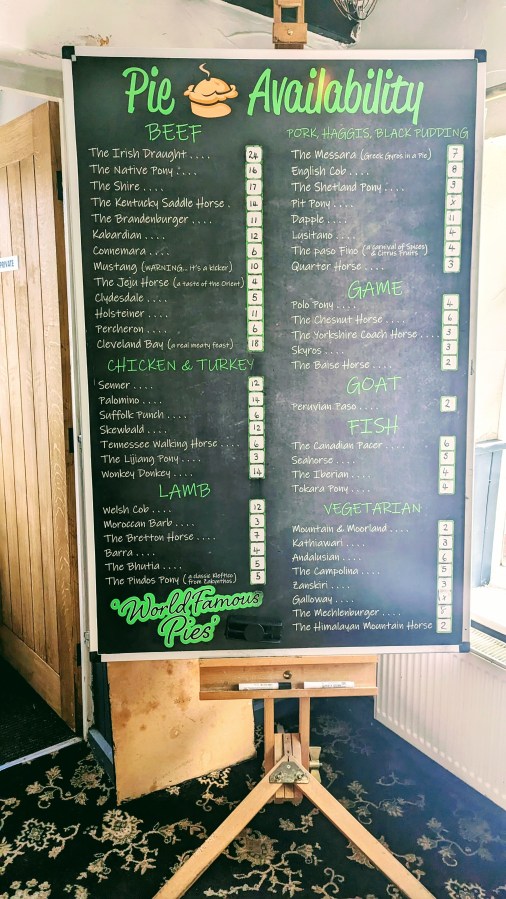 Pie Availability
BEEF
The Irish Draught . . . . 24
The Native Pony . . . . 16
The Shire . . . . 17
The Kentucky Saddle Horse . 14
The Brandenburger . . . . 11
Kabardian . . . . 12
Connemara . . . . 6
Mustang (WARNING... it's a kicker) 10
The Jeju Horse (a taste of the Orient) 4
Clydesdale . . . . 5
Holsteiner . . . . 11
Percheron . . . . 6
Cleveland Bay (a real meaty feast) 18
CHICKEN & TURKEY
Senner . . . . 12
Palomino . . . . 14
Suffolk Punch . . . . 6
Skewbald . . . . 12
Tennessee Walking Horse . . . . 6
The Lijiang Pony . . . . 3
Wonkey Donkey . . . . 14
LAMB
Welsh Cob . . . . 12
Moroccan Barb . . . . 3
The Bretton Horse . . . . 7
Barra . . . . 4
The Bhutia . . . . 5
The Pindos Pony (a classic Kleftico from Zakynthos) 5
'World Famous
Pies'
PORK, HAGGIS, BLACK PUDDING
The Messara (Greek Gyros in a Pie) 7
English Cob . . . . 8
The Shetland Pony . . . . 3
Pit Pony . . . .
Dapple . . . . 11
Lusitano . . . . 4
The paso Fino (a carnival of Spices & Citrus Fruits) 4
Quarter Horse . . . . 3
GAME
Polo Pony . . . . 4
The Chesnut Horse . . . . 6
The Yorkshire Coach Horse . . . . 3
Skyros . . . . 3
The Baise Horse . . . . 2
GOAT
Peruvian Paso . . . . 2
FISH
The Canadian Pacer . . . . 6
Seahorse . . . . 5
The Iberian . . . . 4
Tokara Pony . . . . 4
VEGETARIAN
Mountain & Moorland . . . . 2
Kathiawari . . . .
Andalusian . . . . 6
The Campolina . . . . 5
Zanskiri . . . . 3
Galloway . . . .
The Mechlenburger . . . .
The Himalayan Mountain Horse 2
PRIVATE